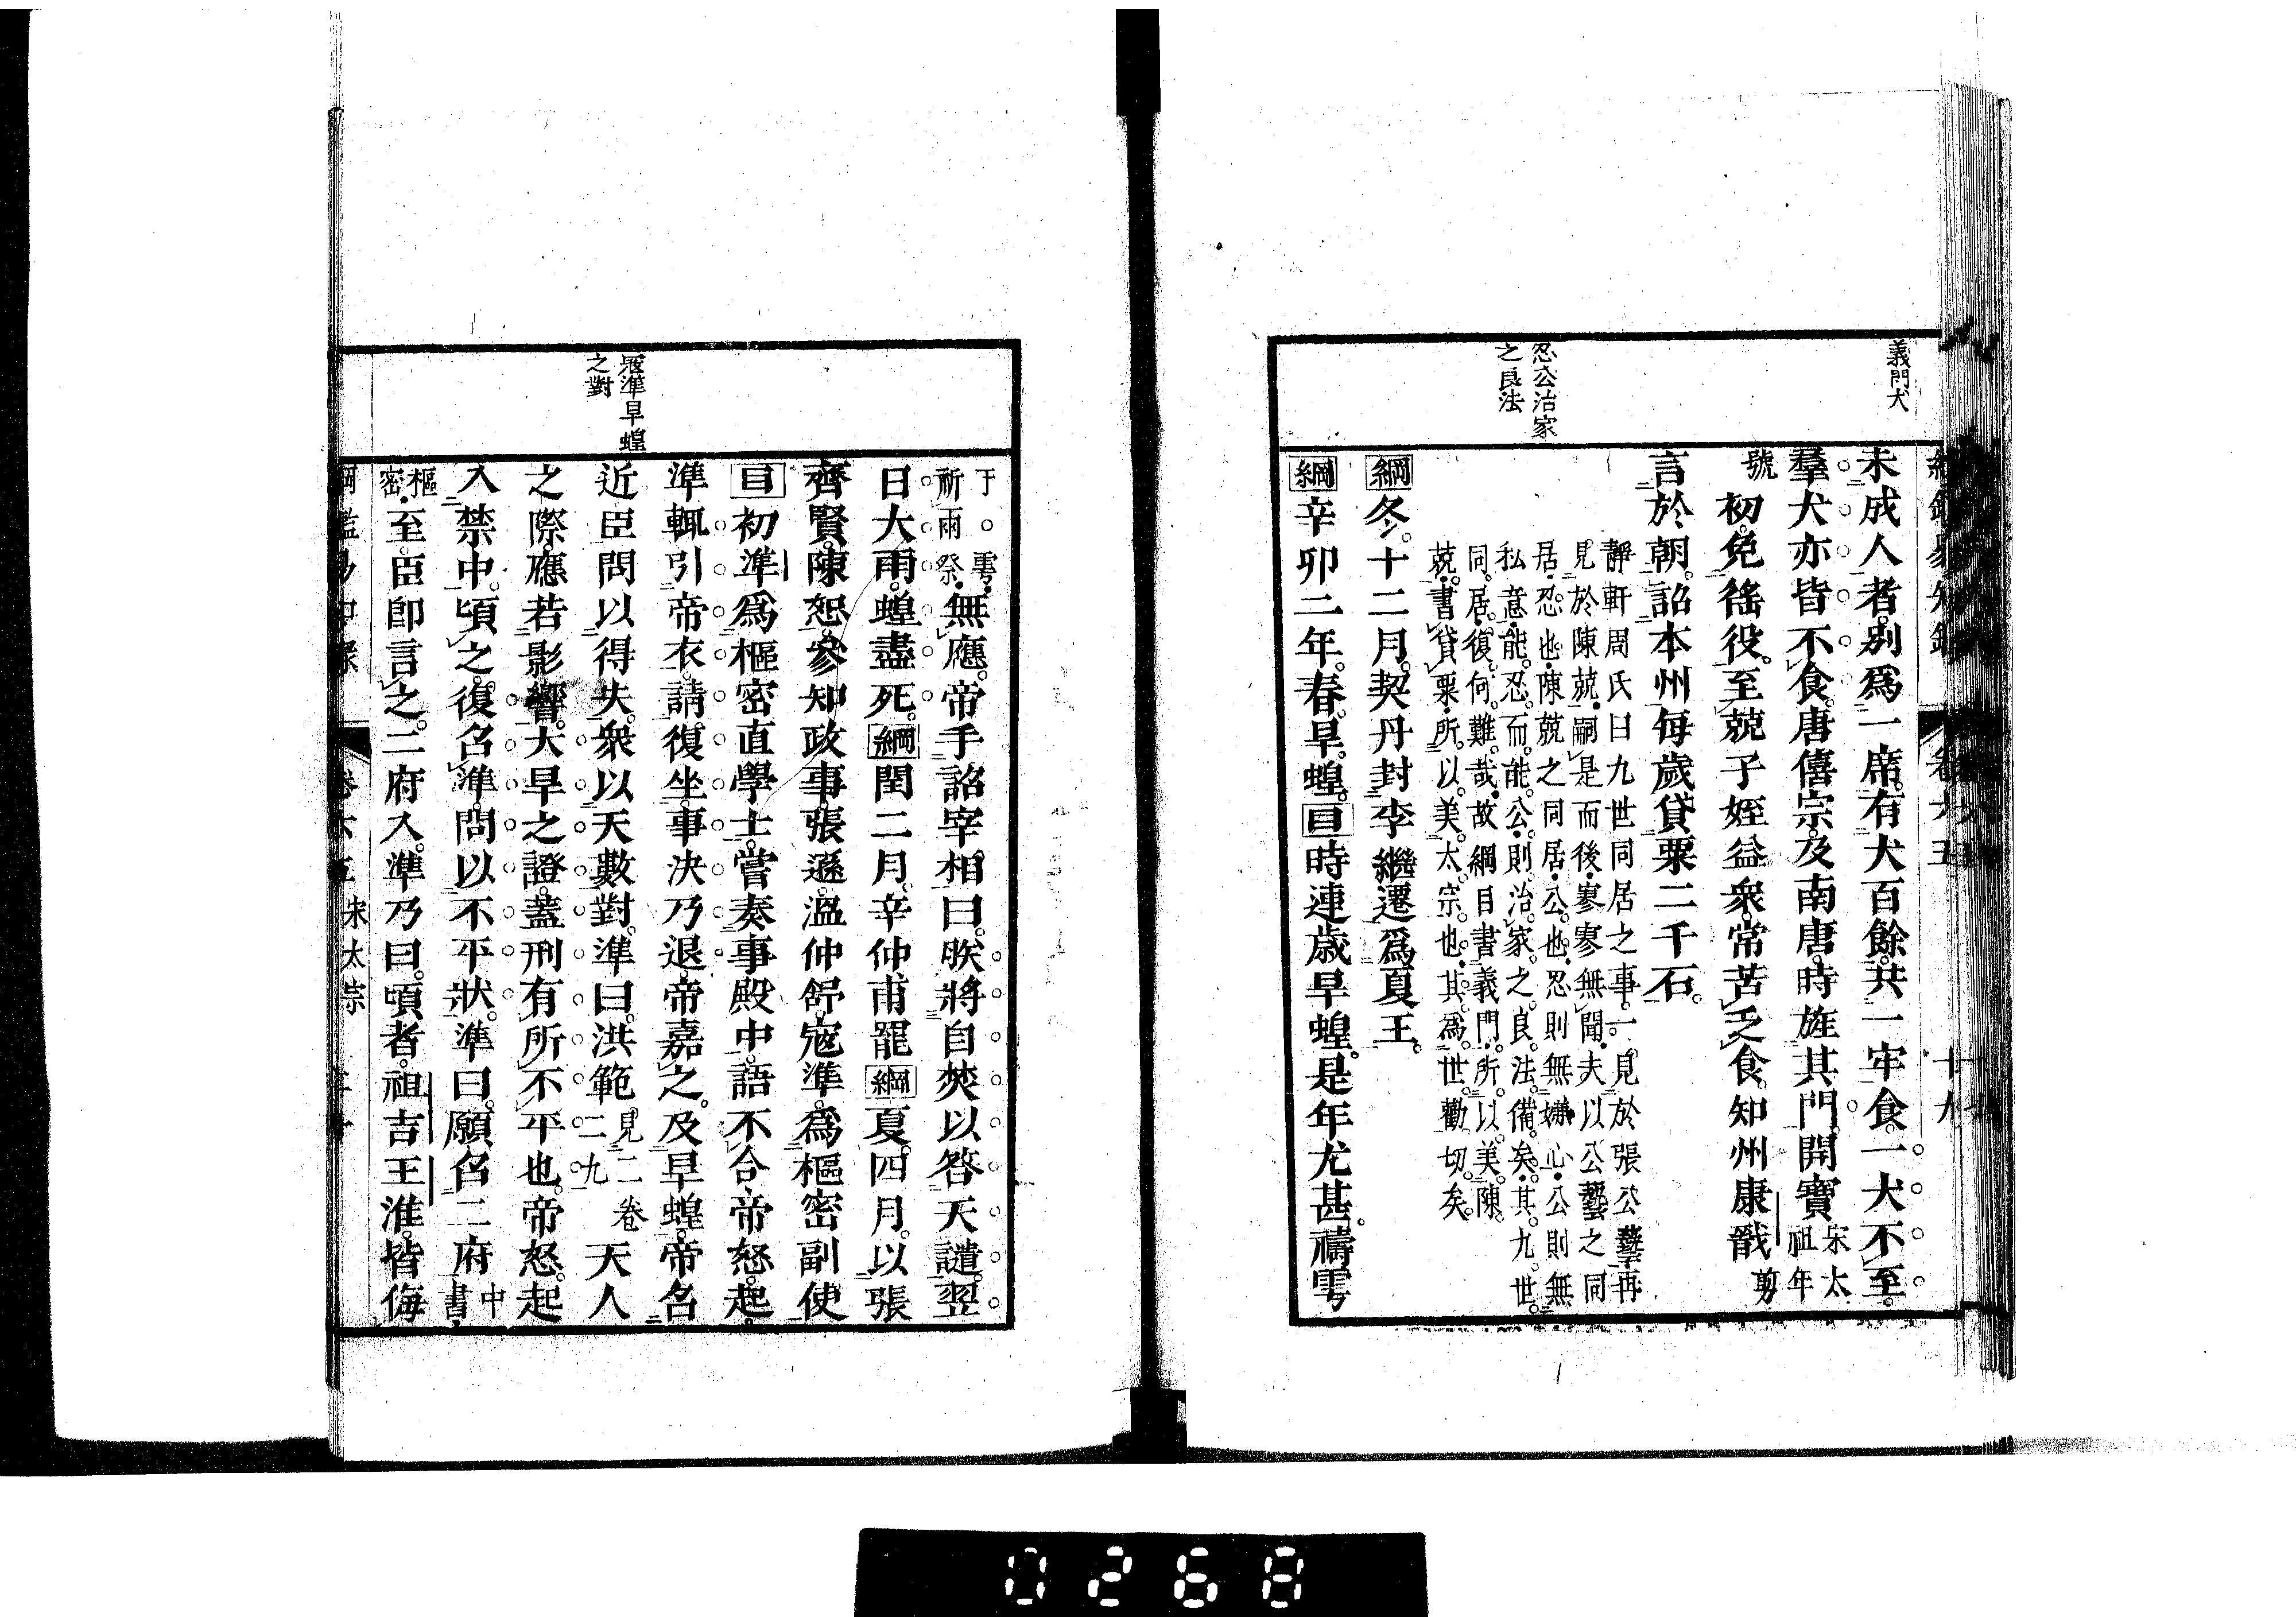 義門犬
未成人者別爲一席有犬百餘共一牢食一犬不至
羣犬亦皆不食唐僖宗及南唐時旌其門開寶宋太祖年
號初免徭役至兢子姪益衆常苦乏食知州康戩剪
言於朝詔本州每歲貸粟二千石
忍公治家
之良法
靜軒周氏曰九世同居之事一見於張公藝再
見於陳兢嗣是而後寥寥無聞夫以公藝之同
居忍也陳兢之同居公也忍則無嫌心公則無
私意能忍而能公則治家之良法備矣其九世
同居復何難哉故綱目書義門所以美陳
兢書貸粟所以美太宗也其爲世勸切矣
綱冬十二月契丹封李繼遷爲夏王
綱辛卯二年春旱蝗目時連歲旱蝗是年尤甚禱雩
于○雩
祈雨祭無應帝手詔宰相曰朕將自焚以答天譴翌
日大雨蝗盡死綱閏二月辛仲甫罷綱夏四月以張
齊賢陳恕參知政事張遜溫仲舒寇準爲樞密副使
寇準旱蝗
之對
目初準爲樞密直學士嘗奏事殿中語不合帝怒起
準輒引帝衣請復坐事決乃退帝嘉之及旱蝗帝召
近臣問以得失衆以天數對準曰洪範見二卷二九天人
之際應若影響大旱之證蓋刑有所不平也帝怒起
入禁中頃之復召準問以不平狀準曰願召二府中書
樞密至臣卽言之二府入準乃曰頃者祖吉王淮皆侮
宋太宗
0268